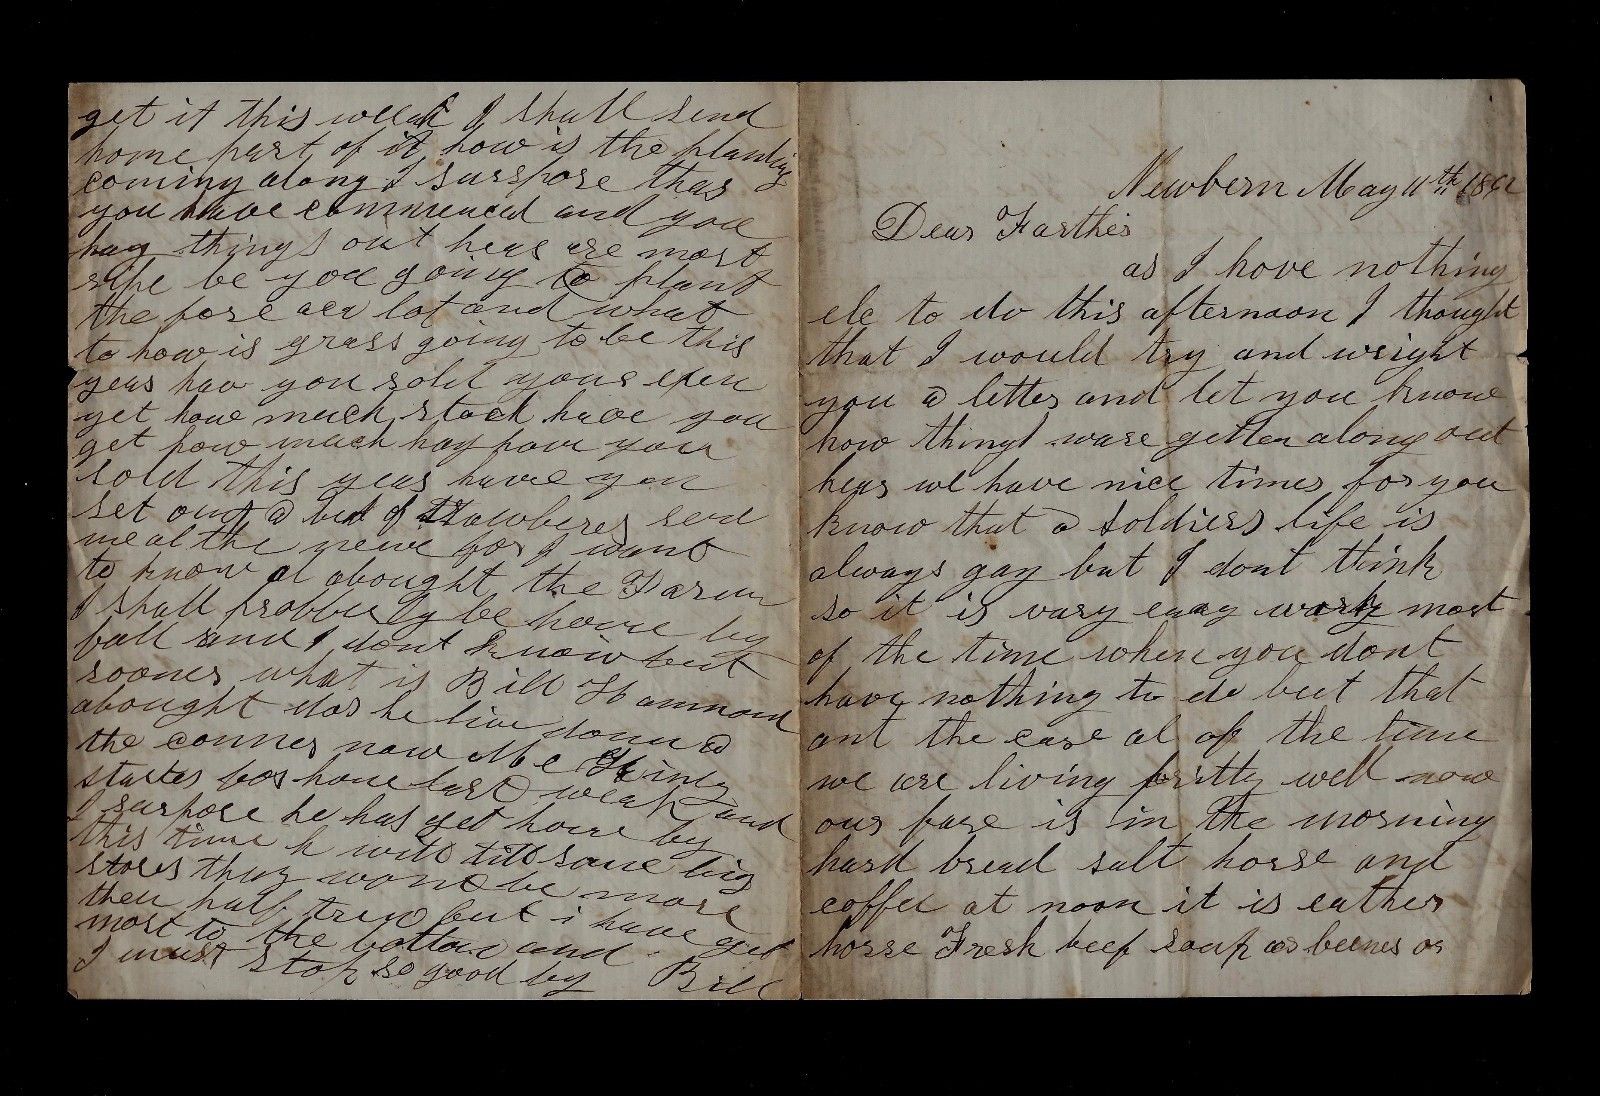 Newbern May 11th 1862
Dear Farther
as I have nothing
els to do this afternoon I thought
that I would try and wright
you a letter and let you know
how things ware getten along out
hear we have nice times for you
know that a soldiers life is
always gay but I dont think
so it is vary easy work most
of the time when you dont
have nothing to do but that
ant the case al of the time
we are living pritty well now
our fare is in the morning
hard bread salt horse and
coffee at noon it is eather
horse Fresh beef soup or beenes or
get it this weeak I shall send
home part of it how is the planting
coming along I surspose that
you have commenced and you
hay things out hear are most
ripe be you going to plant
the fore acr lot and what
to how is grass going to be this
year hav you sold your oxen
yet how much stock have you
get how much hay have you
sold this year have you
set out a bed of Strawberes send
me al the newe for I want
to know al abought the Farm
I shall probberly be home by
fall and I dont know but
sooner what is Bill Hammond
abought dos he live down a
the corner now
startes for home last weak and
I surspose he has get home by
this time h will till some big
stores they wont be more
then half trew but i have get
most to the bottom and
I must stop so good by Bill